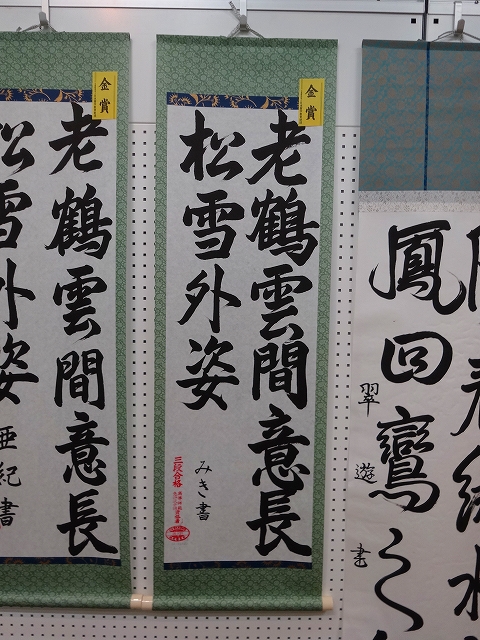 金賞
老鶴雲間意長
松雪外姿
みき書
三段合格
金賞
老鶴雲間意長
松雪外姿
亜紀書
鳳回鸞
翠遊書